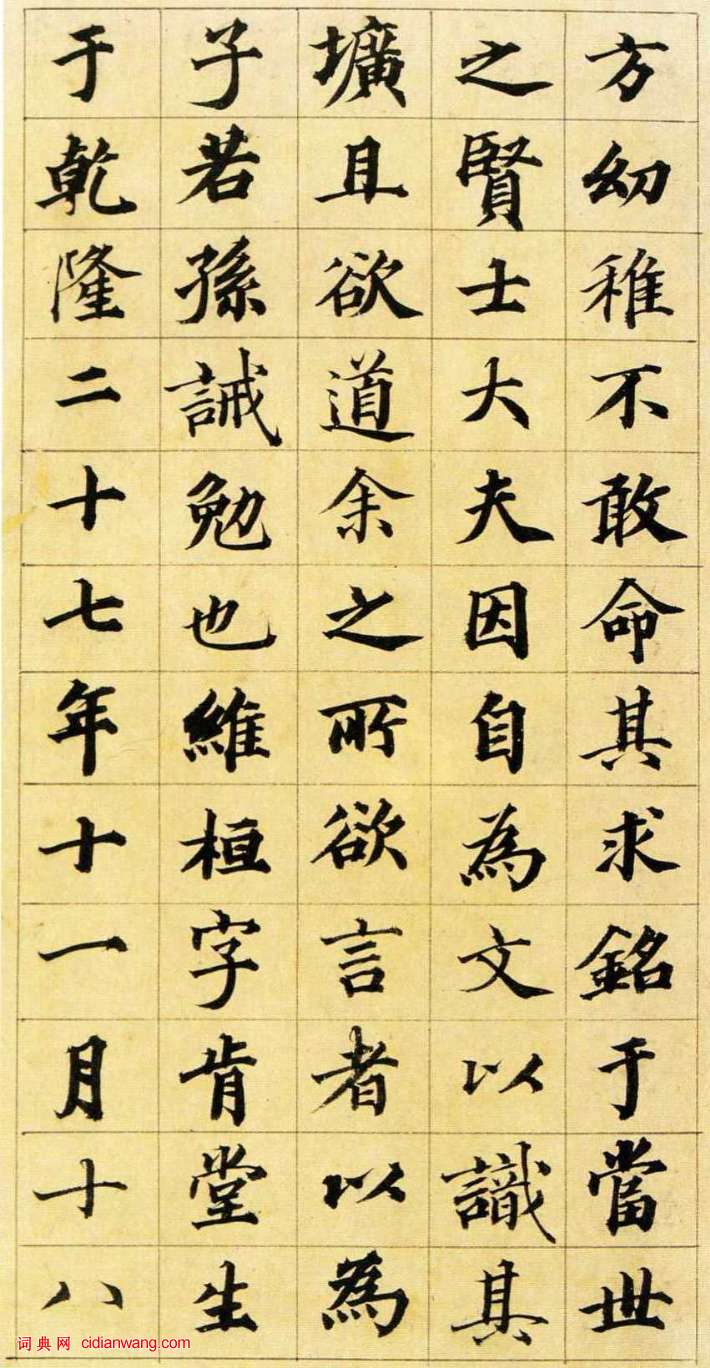 方幼稚不敢命其求銘于當世
之賢士大夫因自為文以識其
壙且欲道余之所欲言者以為
子若孫誡勉也維桓字肯堂生
于乾隆二十七年十一月十八
词典网 cidianwang.com